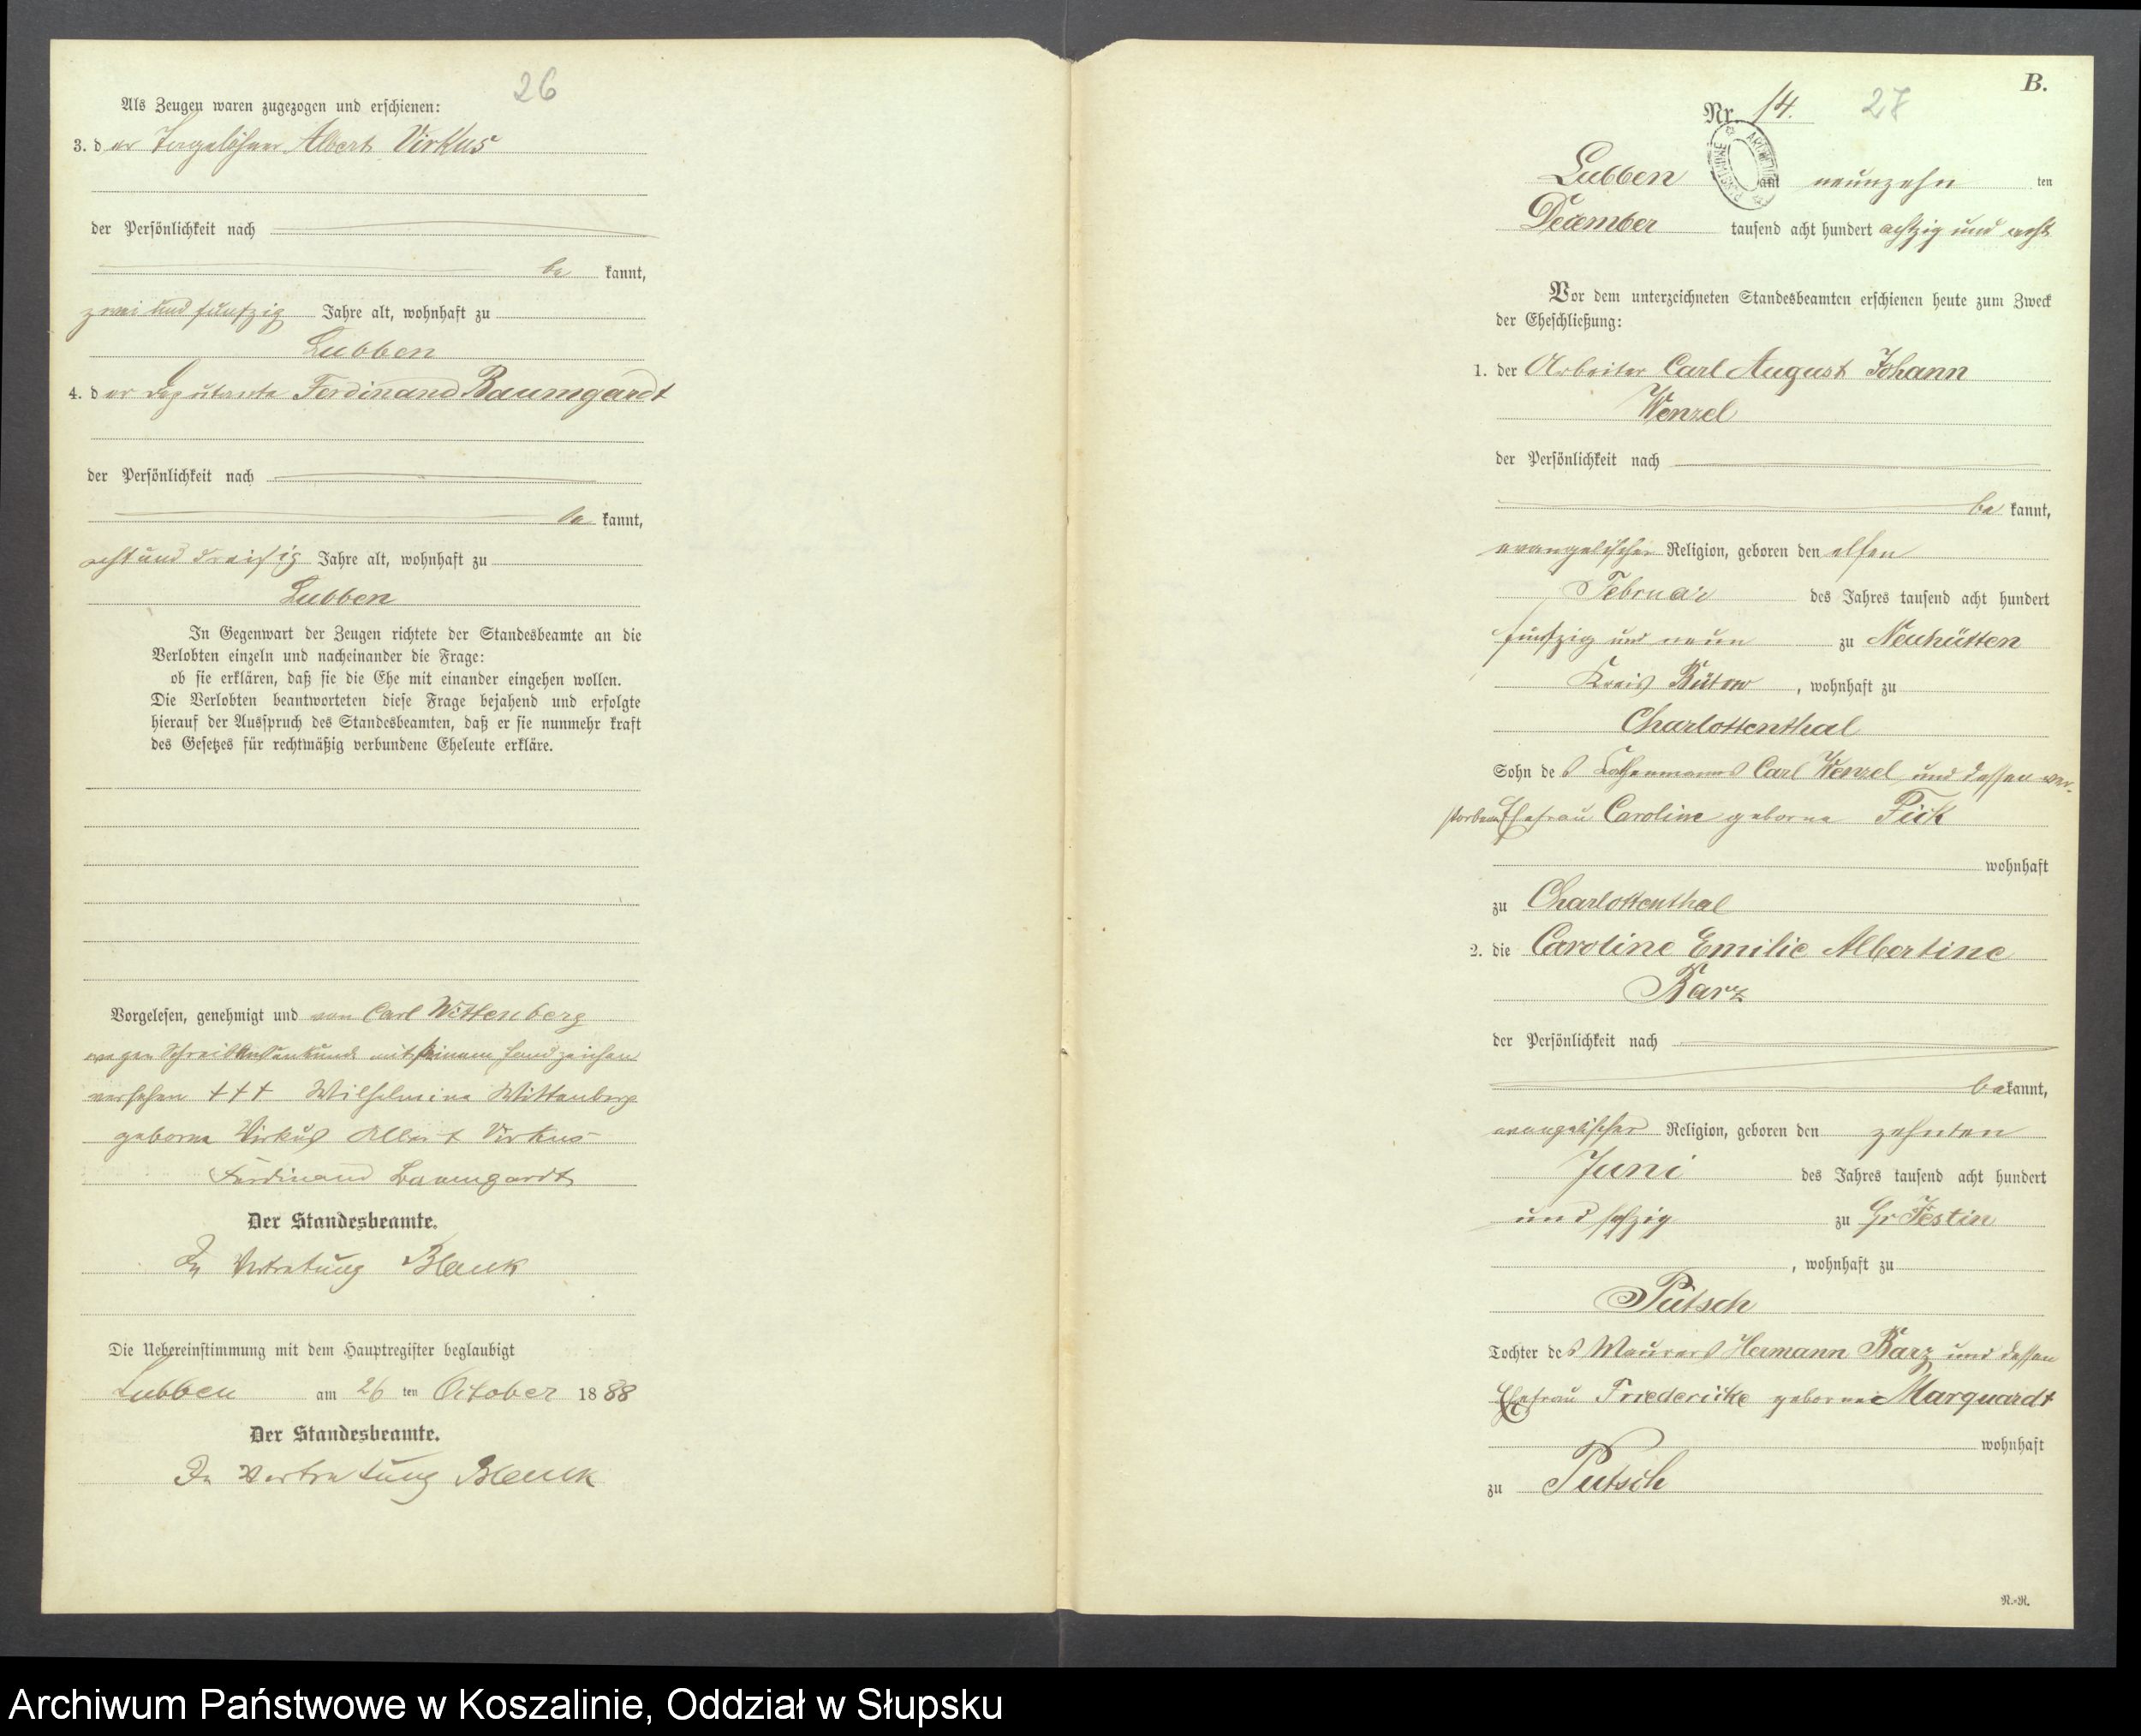 26
Als Zeugen waren zugezogen und erschienen:
3. der Tagelöhner Albert Virkus
der Persönlichkeit nach
be kannt,
zwei und fünfzig Jahre alt, wohnhaft zu
Lubben
4. der Deputante Ferdinand Baumgardt
der Persönlichkeit nach
be kannt,
acht und dreißig Jahre alt, wohnhaft zu
Lubben
In Gegenwart der Zeugen richtete der Standesbeamte an die
Verlobten einzeln und nacheinander die Frage:
ob sie erklären, daß sie die Ehe mit einander eingehen wollen.
Die Verlobten beantworteten diese Frage bejahend und erfolgte
hierauf der Ausspruch des Standesbeamten, daß er sie nunmehr kraft
des Gesetzes für rechtmäßig verbundene Eheleute erkläre.
Vorgelesen, genehmigt und von Carl Wittenberg
wegen Schreibensunkunde mit seinem Handzeichen
versehen +++ Wilhelmine Wittenberg
geborne Virkus Albert Virkus
Ferdinand Baumgardt
Der Standesbeamte.
In Vertretung Blank
Die Uebereinstimmung mit dem Hauptregister beglaubigt
Lubben am 26 ten October 1888
Der Standesbeamte.
In Vertretung Blank
B.
Nr. 14. 27
Lubben am neunzehn ten
December tausend acht hundert achtzig und acht
Vor dem unterzeichneten Standesbeamten erschienen heute zum Zweck
der Eheschließung:
1. der Arbeiter Carl August Johann
Wenzel
der Persönlichkeit nach
be kannt,
evangelischer Religion, geboren den elften
Februar des Jahres tausend acht hundert
fünfzig und neun zu Neuhütten
Kreis Bütow, wohnhaft zu
Charlottenthal
Sohn des Kathenmanns Carl Wenzel und dessen ver-
storbene Ehefrau Caroline geborne Fick
wohnhaft
zu Charlottenthal
2. die Caroline Emilie Albertine
Barz
der Persönlichkeit nach
bekannt,
evangelischer Religion, geboren den zehnten
Juni des Jahres tausend acht hundert
und sechzig zu Gr Jestin
, wohnhaft zu
Pütsch
Tochter des Maurers Hermann Barz und dessen
Ehefrau Friedericke geborne Marquardt
wohnhaft
zu Putsch
N.-N.
Archiwum Państwowe w Koszalinie, Oddział w Słupsku